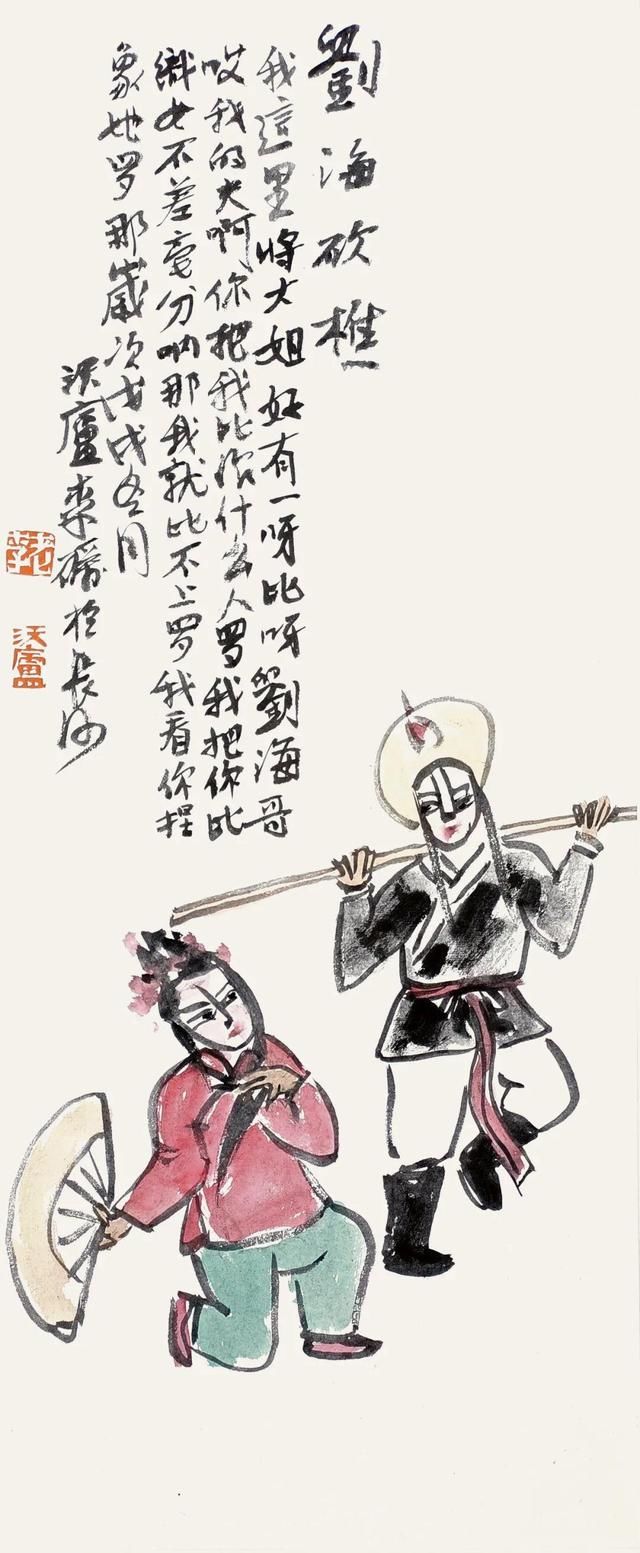 劉海砍樵
我這里將大姐好有一呀比呀劉海哥
哎我的夫啊你把我比做什么人罗我把你比
織女不差毫分呐那我就比不上罗我看你捏
象她罗那歲次戊戌冬月
於長沙